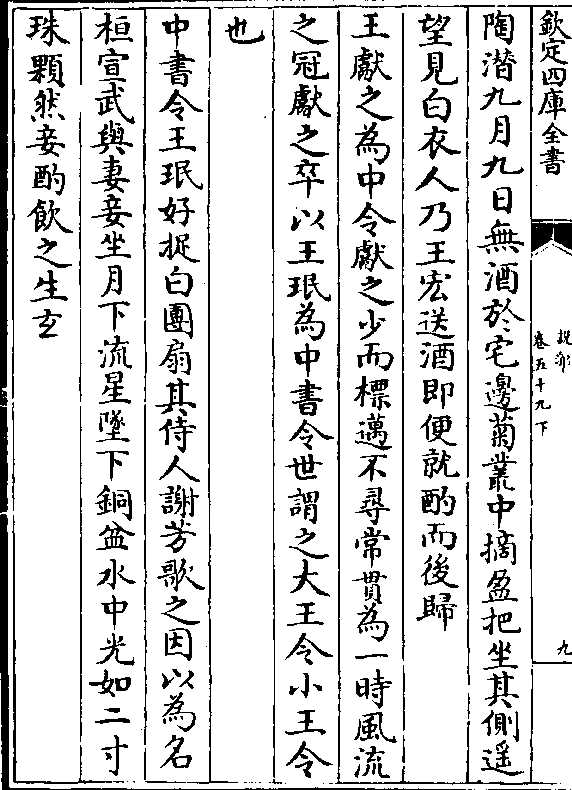 欽定四庫全書
說郛
卷五十九下
九
陶潛九月九日無酒於宅邊菊叢中摘盈把坐其側遥
望見白衣人乃王宏送酒即便就酌而後歸
王獻之為中令獻之少而標邁不尋常貫為一時風流
之冠獻之卒以王珉為中書令世謂之大王令小王令
也
中書令王珉好捉白團扇其侍人謝芳歌之因以為名
桓宣武與妻妾坐月下流星墜下銅盆水中光如二寸
珠顆然妾酌飲之生玄